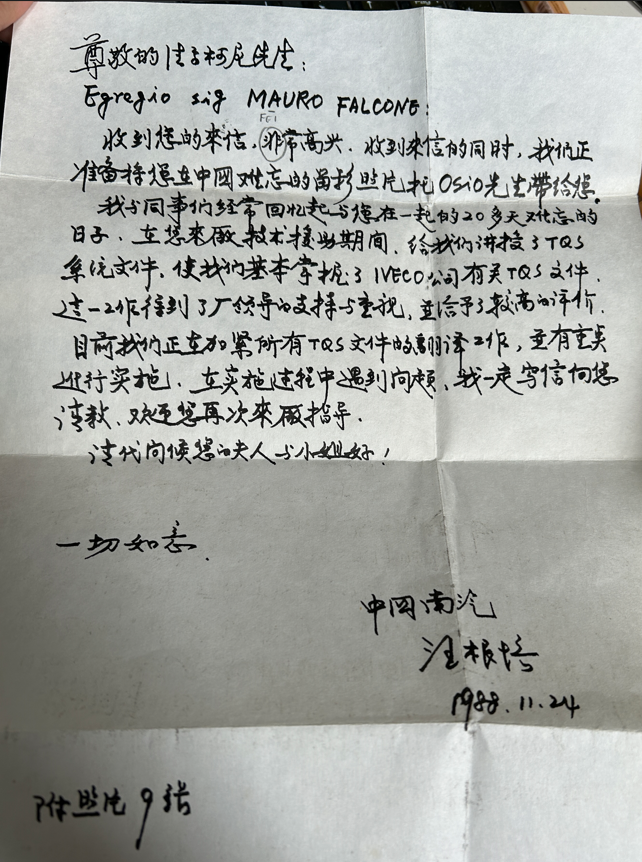 尊敬的法子柯尼先生：
Egregio sig MAURO FALCONE:
FEI
收到您的来信，非常高兴．收到来信的同时，我们正
准备将您在中國难忘的留影照片托Osio先生带给您。
我与同事们经常回忆起与您在一起的20多天难忘的
日子．在您来厰技术援助期间．给我们讲授了TQS
系统文件．使我们基本掌握了IVECO公司有关TQS文件．
这一工作得到了厂领导的支持与重视，並给予了较高的评价．
目前我们正在加紧所有TQS文件的翻译工作，並有重点
进行实施．在实施过程中遇到问题，我一定写信向您
请教．欢迎您再次来厰指导．
请代问候您的夫人与小姐好！
一切如意．
中国南汽
汪根培
1988.11.24
附照片9张